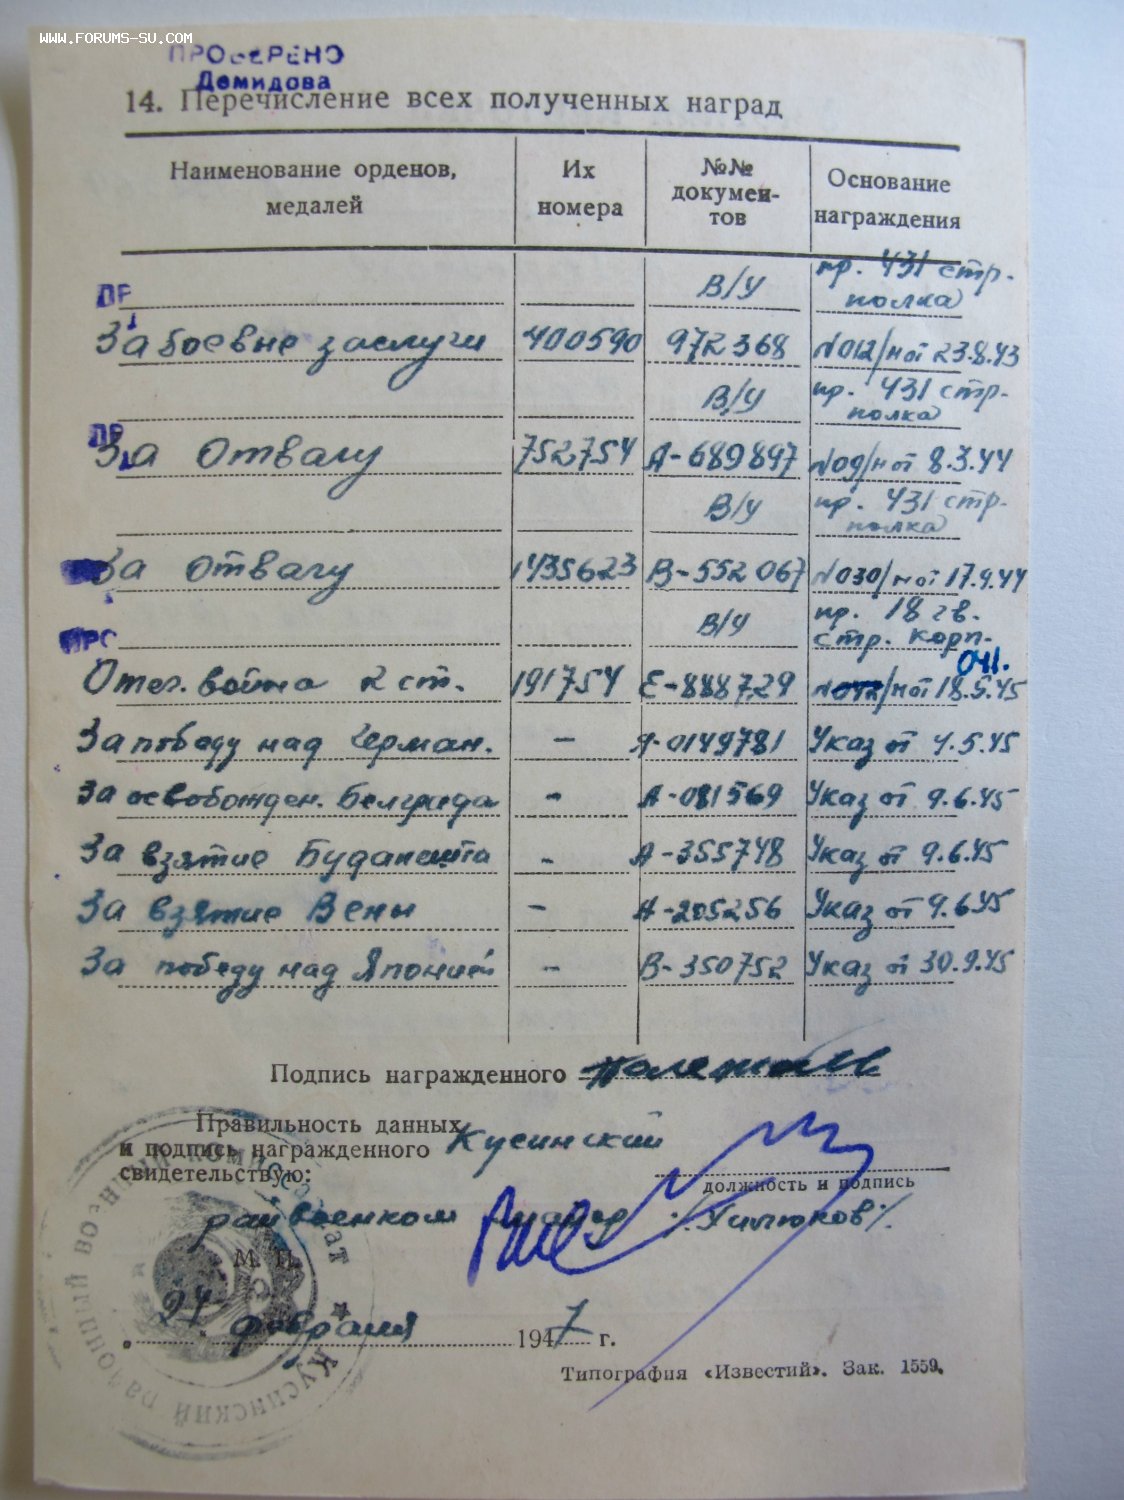 WWW.FORUMS-SU.COM
ПРОВЕРЕНО
Демидова
14. Перечисление всех полученных наград
Наименование орденов, медалей Их номера №№ докумен-тов Основание награждения
ПР В/У пр. 431 стр. полка
За боевые заслуги 400590 972368 №012/н от 23.8.43
В/У пр. 431 стр. полка
ПР За Отвагу 752754 А-689897 №09/н от 8.3.44
В/У пр. 431 стр. полка
За Отвагу 1435623 В-552067 №030/н от 17.9.44
ПРО В/У пр. 18 гв. стр. корп.
041.
Отеч. война 2 ст. 191754 Е-888729 /н от 18.5.45
За победу над Герман. – А-0149781 Указ от 9.5.45
За освобожден. Белграда – А-081569 Указ от 9.6.45
За взятие Будапешта – А-355748 Указ от 9.6.45
За взятие Вены – А-205256 Указ от 9.6.45
За победу над Японией – В-350752 Указ от 30.9.45
Подпись награжденного
Правильность данных
и подпись награжденного Кусинский
свидетельствую:
должность и подпись
райвоенком майор
М. П.
24 февраля 1947 г.
Кусинский районный военный комиссариат
Типография «Известий». Зак. 1559.